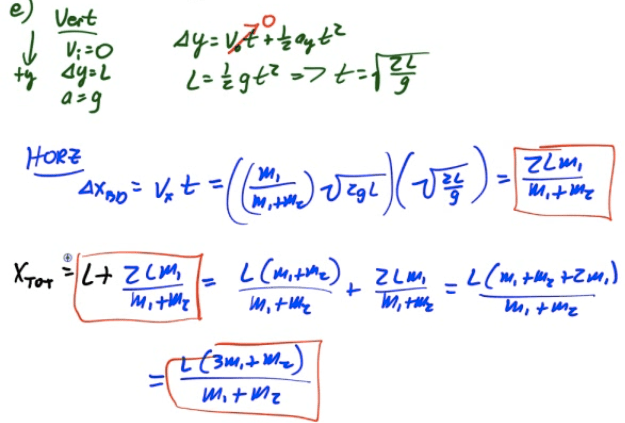 e) Vert
Vi = 0
+y Δy = L
a = g
Δy = V₀t + ½ a_y t² 0
L = ½ g t² => t = √(2L/g)
HORZ
Δx_BD = Vₓ t = ((m₁/(m₁+m₂)) √(2gL)) (√(2L/g)) = 2Lm₁/(m₁+m₂)
X_TOT = L + 2Lm₁/(m₁+m₂) = L(m₁+m₂)/(m₁+m₂) + 2Lm₁/(m₁+m₂) = L(m₁+m₂+2m₁)/(m₁+m₂)
= L(3m₁+m₂)/(m₁+m₂)